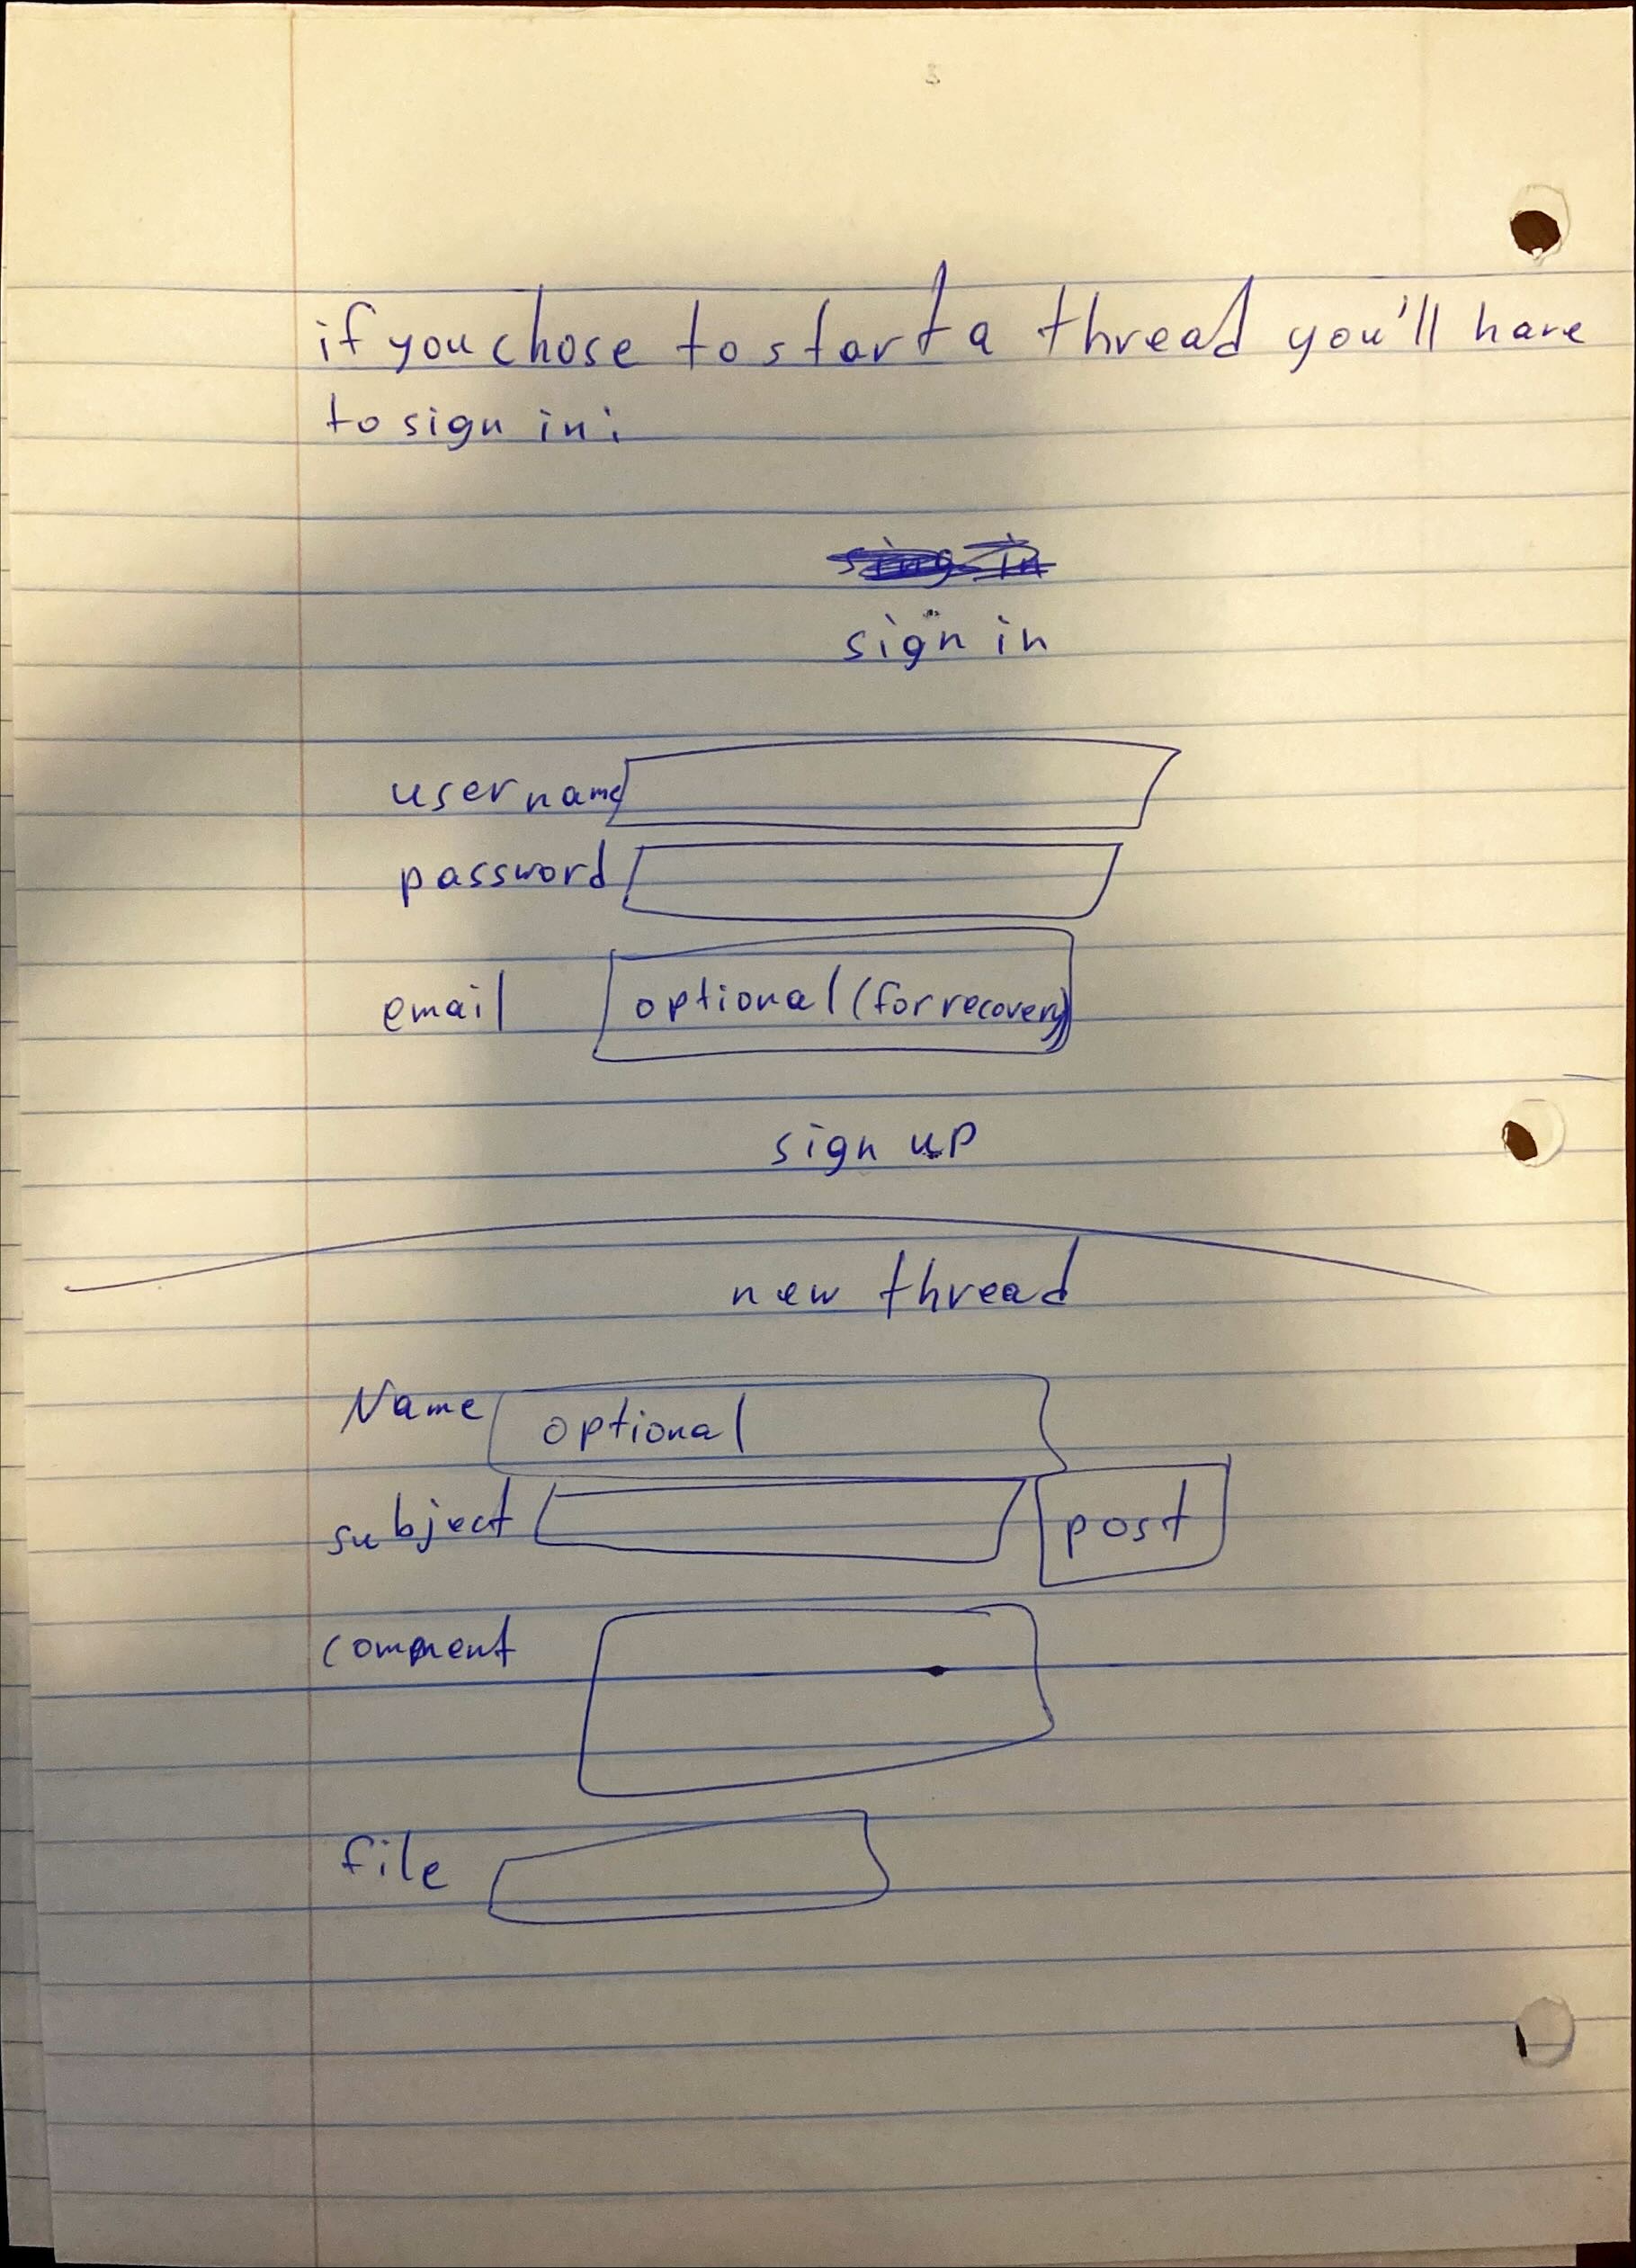 if you chose to start a thread you'll have
to sign in:
sign in
username
password
email optional (for recovery)
sign up
new thread
Name optional
subject post
comment
file